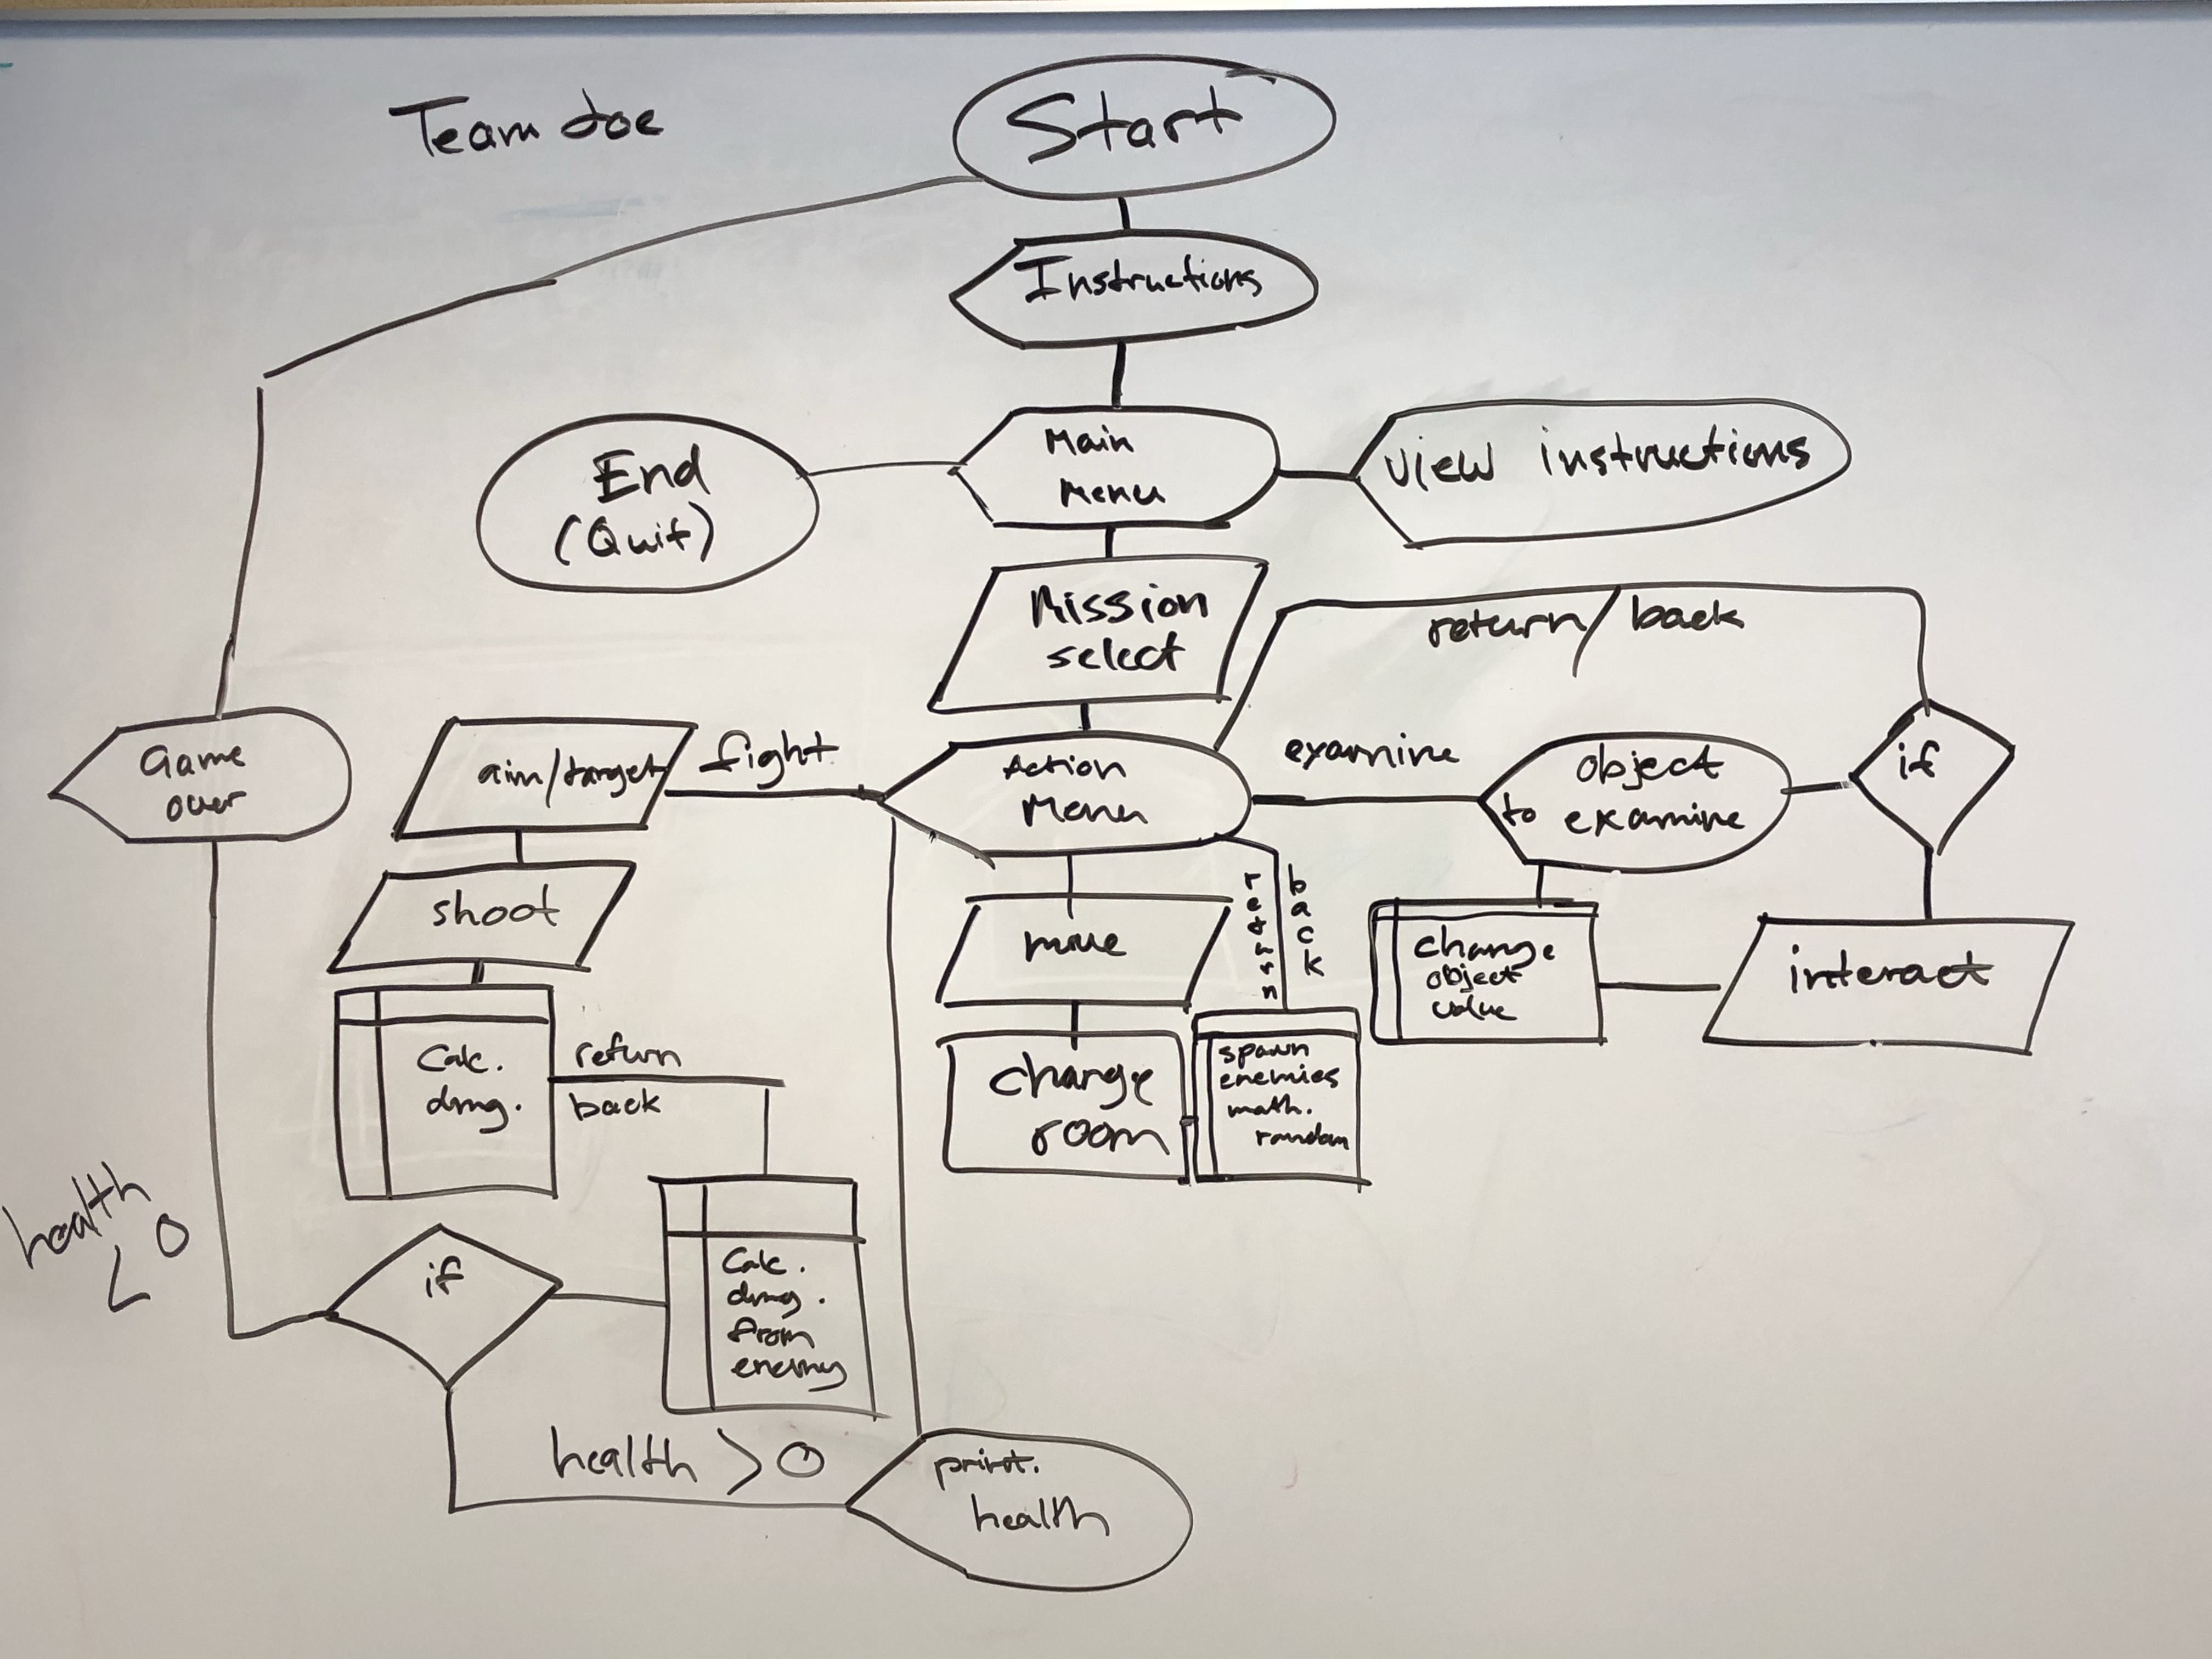 Team doe
Start
Instructions
Main
Menu
End
(Quit)
view instructions
Mission
select
return/back
Game
over
aim/target
fight
Action
Menu
examine
object
to examine
if
shoot
move
return
back
change
object
value
interact
Calc.
dmg.
return
back
change
room
spawn
enemies
math.
random
health
< 0
if
Calc.
dmg.
from
enemy
health > 0
print.
health